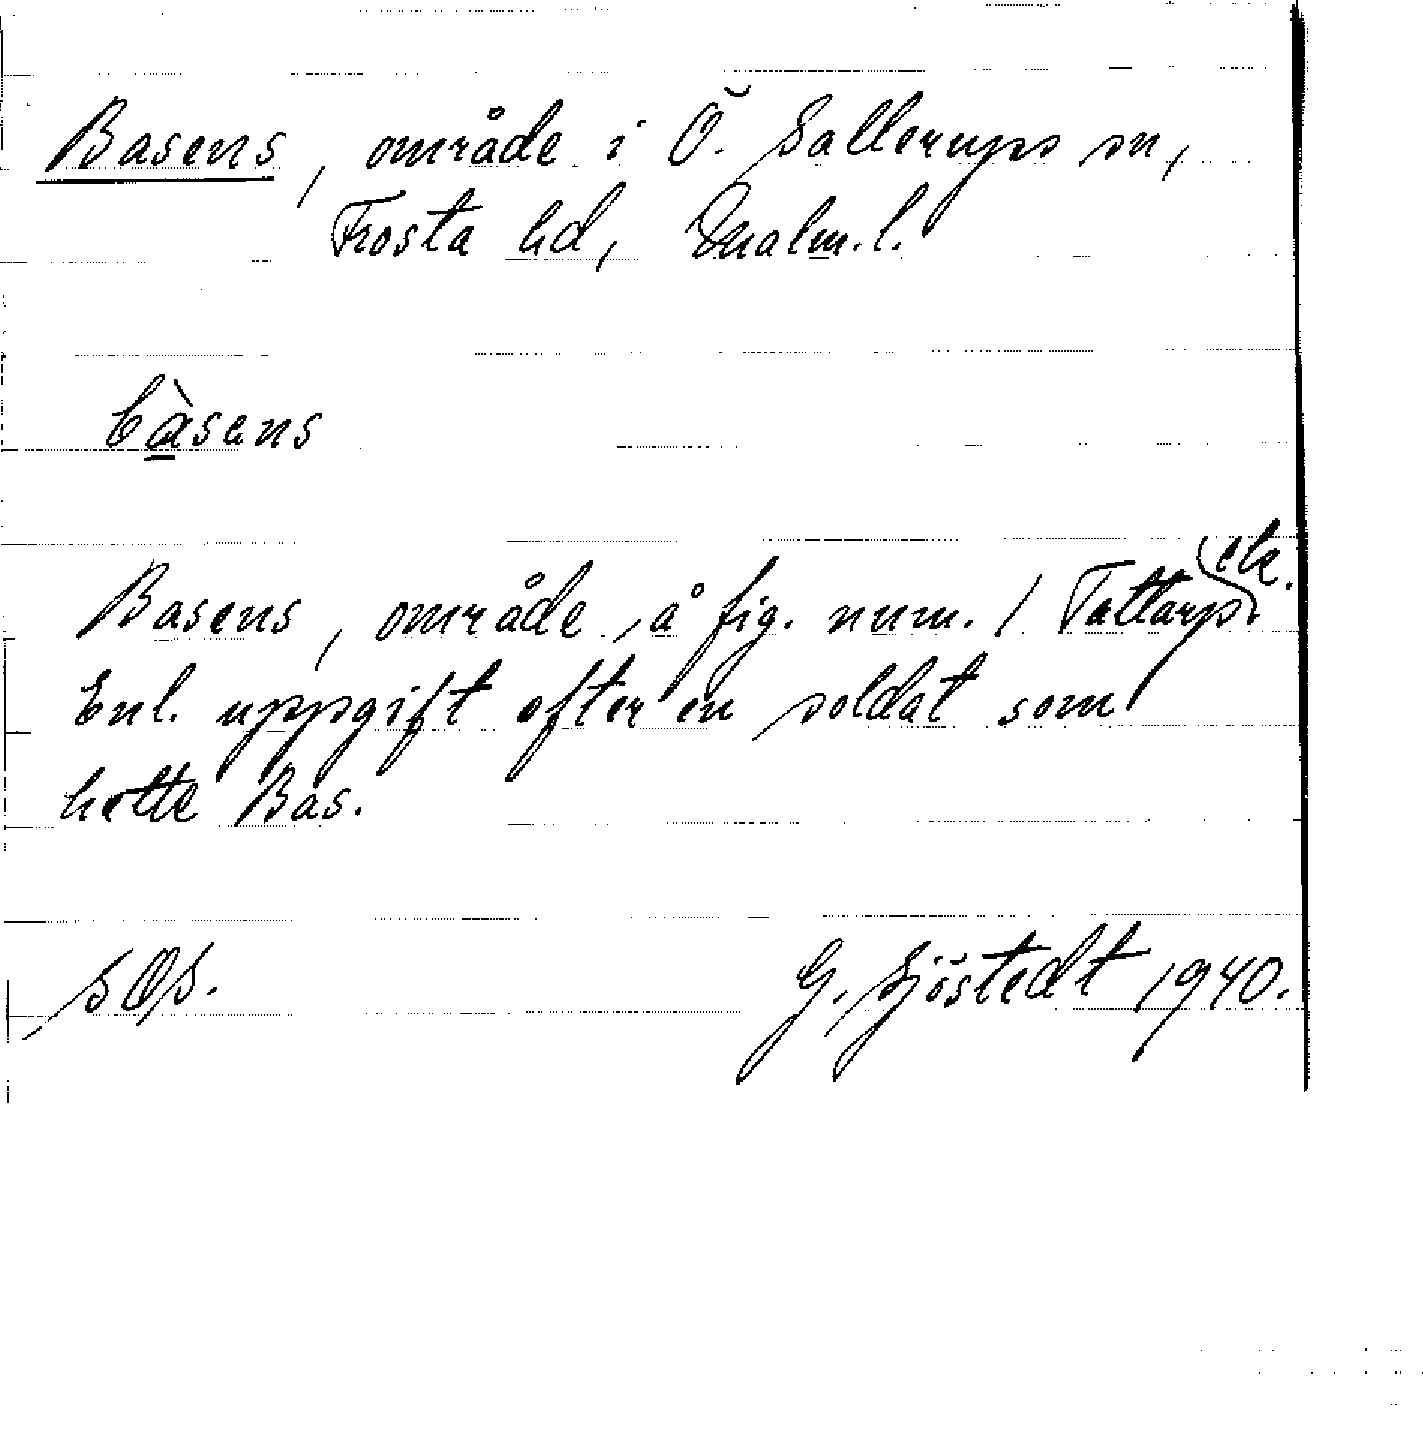 Basens, område i Ö. Sallerups sn,
Frosta hd, Malm. l.
bàsens
Basens, område, å fig. num. 1 Tattarps ek.
Enl. uppgift efter en soldat som
hette Bas.
SOS. G. Sjöstedt 1940.